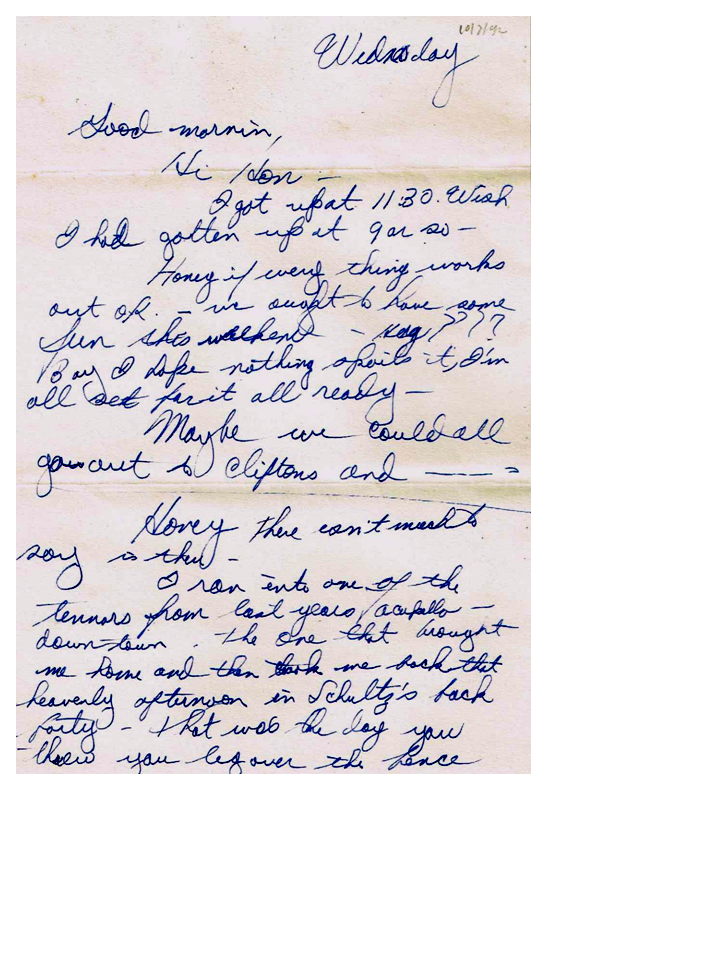 10/7/42
Wednsday
Good mornin,
Hi Hon -
I got up at 11:30. Wish
I had gotten up at 9 or so -
Honey if every thing works
out ok. - we ought to have some
fun this weekend - say????
Boy I hope nothing spoils it, I'm
all set for it all ready -
Maybe we could all
go out to Cliftons and ----
Honey there isn't much to
say is there -
I ran into one of the
tennors from last years acapella -
down-town. The one that brought
me home and then took me back that
heavenly afternoon in Schultz's back
party - that was the day you
threw you leg over the fence